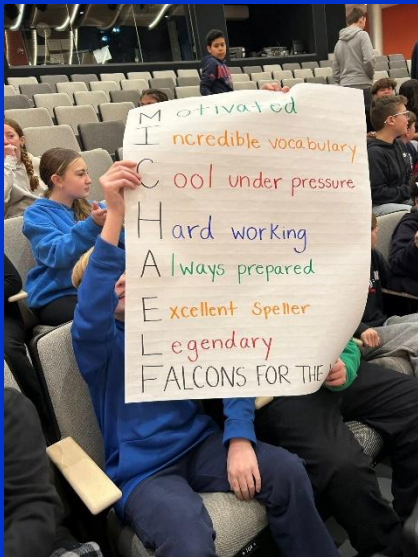 Motivated
Incredible vocabulary
Cool under pressure
Hard working
Always prepared
Excellent Speller
Legendary
FALCONS FOR THE